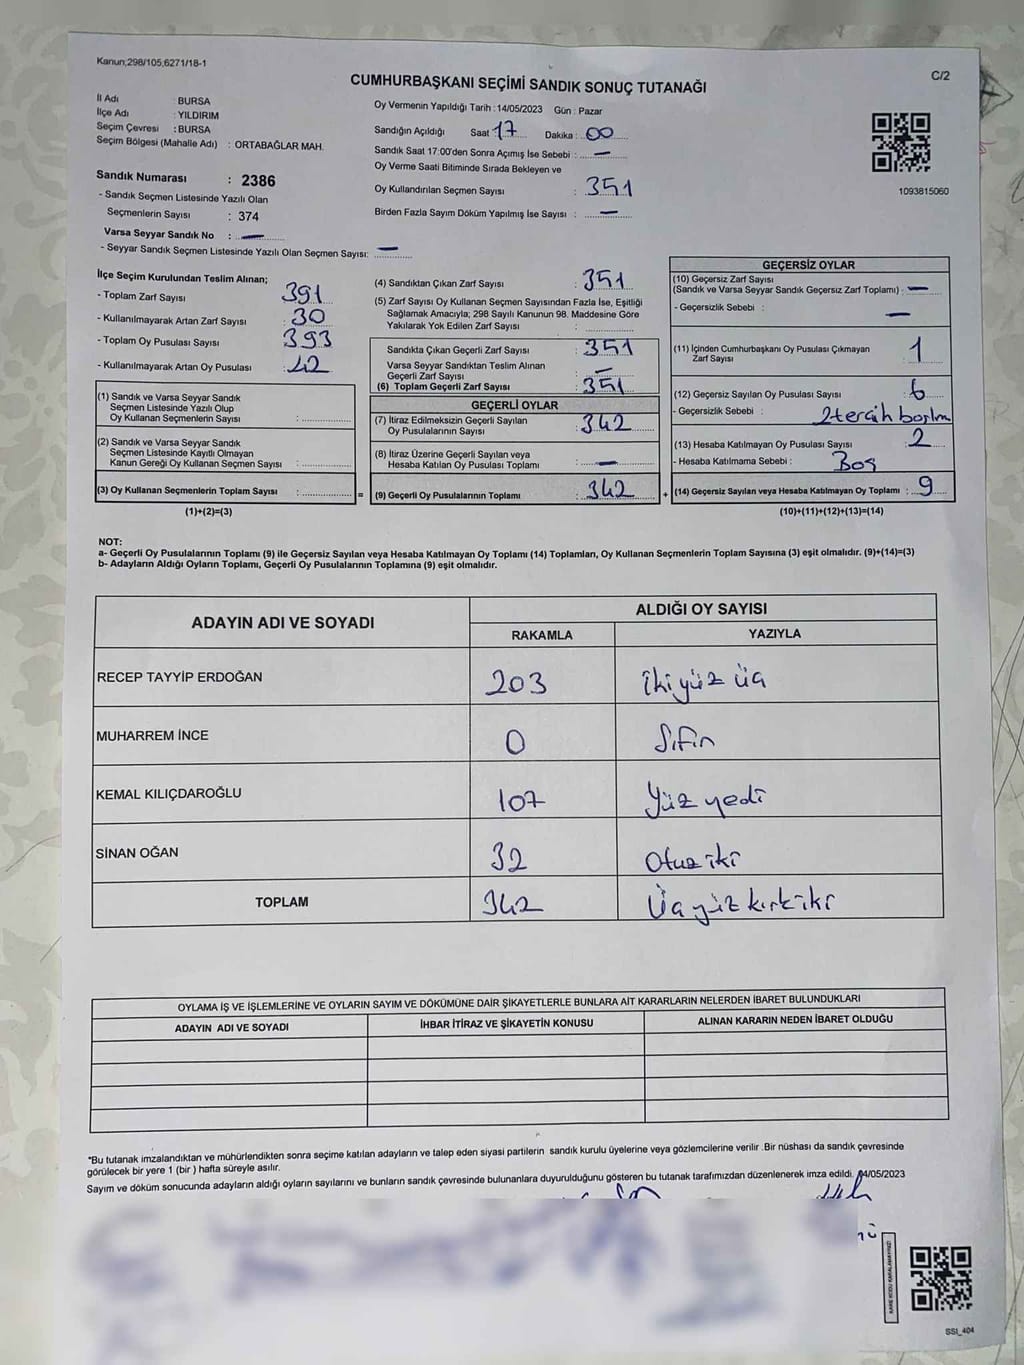 Kanun;298/105;6271/18-1
C/2
CUMHURBAŞKANI SEÇİMİ SANDIK SONUÇ TUTANAĞI
İl Adı : BURSA
İlçe Adı : YILDIRIM
Seçim Çevresi : BURSA
Seçim Bölgesi (Mahalle Adı) : ORTABAĞLAR MAH.
Sandık Numarası : 2386
- Sandık Seçmen Listesinde Yazılı Olan
Seçmenlerin Sayısı : 374
Varsa Seyyar Sandık No : —
- Seyyar Sandık Seçmen Listesinde Yazılı Olan Seçmen Sayısı: —
Oy Vermenin Yapıldığı Tarih : 14/05/2023 Gün : Pazar
Sandığın Açıldığı Saat 17 Dakika : 00
Sandık Saat 17:00'den Sonra Açımış İse Sebebi : —
Oy Verme Saati Bitiminde Sırada Bekleyen ve
Oy Kullandırılan Seçmen Sayısı : 351
Birden Fazla Sayım Döküm Yapılmış İse Sayısı : —
1093815060
İlçe Seçim Kurulundan Teslim Alınan;
- Toplam Zarf Sayısı : 391
- Kullanılmayarak Artan Zarf Sayısı : 30
- Toplam Oy Pusulası Sayısı : 393
- Kullanılmayarak Artan Oy Pusulası : 42
(1) Sandık ve Varsa Seyyar Sandık
Seçmen Listesinde Yazılı Olup
Oy Kullanan Seçmenlerin Sayısı :
(2) Sandık ve Varsa Seyyar Sandık
Seçmen Listesinde Kayıtlı Olmayan
Kanun Gereği Oy Kullanan Seçmen Sayısı :
(3) Oy Kullanan Seçmenlerin Toplam Sayısı : =
(1)+(2)=(3)
(4) Sandıktan Çıkan Zarf Sayısı : 351
(5) Zarf Sayısı Oy Kullanan Seçmen Sayısından Fazla İse, Eşitliği
Sağlamak Amacıyla; 298 Sayılı Kanunun 98. Maddesine Göre
Yakılarak Yok Edilen Zarf Sayısı :
Sandıkta Çıkan Geçerli Zarf Sayısı : 351
Varsa Seyyar Sandıktan Teslim Alınan
Geçerli Zarf Sayısı : —
(6) Toplam Geçerli Zarf Sayısı : 351
GEÇERLİ OYLAR
(7) İtiraz Edilmeksizin Geçerli Sayılan
Oy Pusulalarının Sayısı : 342
(8) İtiraz Üzerine Geçerli Sayılan veya
Hesaba Katılan Oy Pusulası Toplamı : —
(9) Geçerli Oy Pusulalarının Toplamı : 342 +
GEÇERSİZ OYLAR
(10) Geçersiz Zarf Sayısı
(Sandık ve Varsa Seyyar Sandık Geçersiz Zarf Toplamı) : —
- Geçersizlik Sebebi : —
(11) İçinden Cumhurbaşkanı Oy Pusulası Çıkmayan
Zarf Sayısı : 1
(12) Geçersiz Sayılan Oy Pusulası Sayısı : 6
- Geçersizlik Sebebi :
(13) Hesaba Katılmayan Oy Pusulası Sayısı : 2
- Hesaba Katılmama Sebebi : Boş
(14) Geçersiz Sayılan veya Hesaba Katılmayan Oy Toplamı : 9
(10)+(11)+(12)+(13)=(14)
NOT:
a- Geçerli Oy Pusulalarının Toplamı (9) ile Geçersiz Sayılan veya Hesaba Katılmayan Oy Toplamı (14) Toplamları, Oy Kullanan Seçmenlerin Toplam Sayısına (3) eşit olmalıdır. (9)+(14)=(3)
b- Adayların Aldığı Oyların Toplamı, Geçerli Oy Pusulalarının Toplamına (9) eşit olmalıdır.
ADAYIN ADI VE SOYADI
ALDIĞI OY SAYISI
RAKAMLA YAZIYLA
RECEP TAYYİP ERDOĞAN 203 İkiyüz üç
MUHARREM İNCE 0 Sıfır
KEMAL KILIÇDAROĞLU 107 Yüz yedi
SİNAN OĞAN 32 Otuz iki
TOPLAM 342 Üç yüz kırk iki
OYLAMA İŞ VE İŞLEMLERİNE VE OYLARIN SAYIM VE DÖKÜMÜNE DAİR ŞİKAYETLERLE BUNLARA AİT KARARLARIN NELERDEN İBARET BULUNDUKLARI
ADAYIN ADI VE SOYADI İHBAR İTİRAZ VE ŞİKAYETİN KONUSU ALINAN KARARIN NEDEN İBARET OLDUĞU
*Bu tutanak imzalandıktan ve mühürlendikten sonra seçime katılan adayların ve talep eden siyasi partilerin sandık kurulu üyelerine veya gözlemcilerine verilir .Bir nüshası da sandık çevresinde
görülecek bir yere 1 (bir ) hafta süreyle asılır.
Sayım ve döküm sonucunda adayların aldığı oyların sayılarını ve bunların sandık çevresinde bulunanlara duyurulduğunu gösteren bu tutanak tarafımızdan düzenlenerek imza edildi. 14/05/2023
KARE KODU KARALAMAYINIZ!
SSt_404